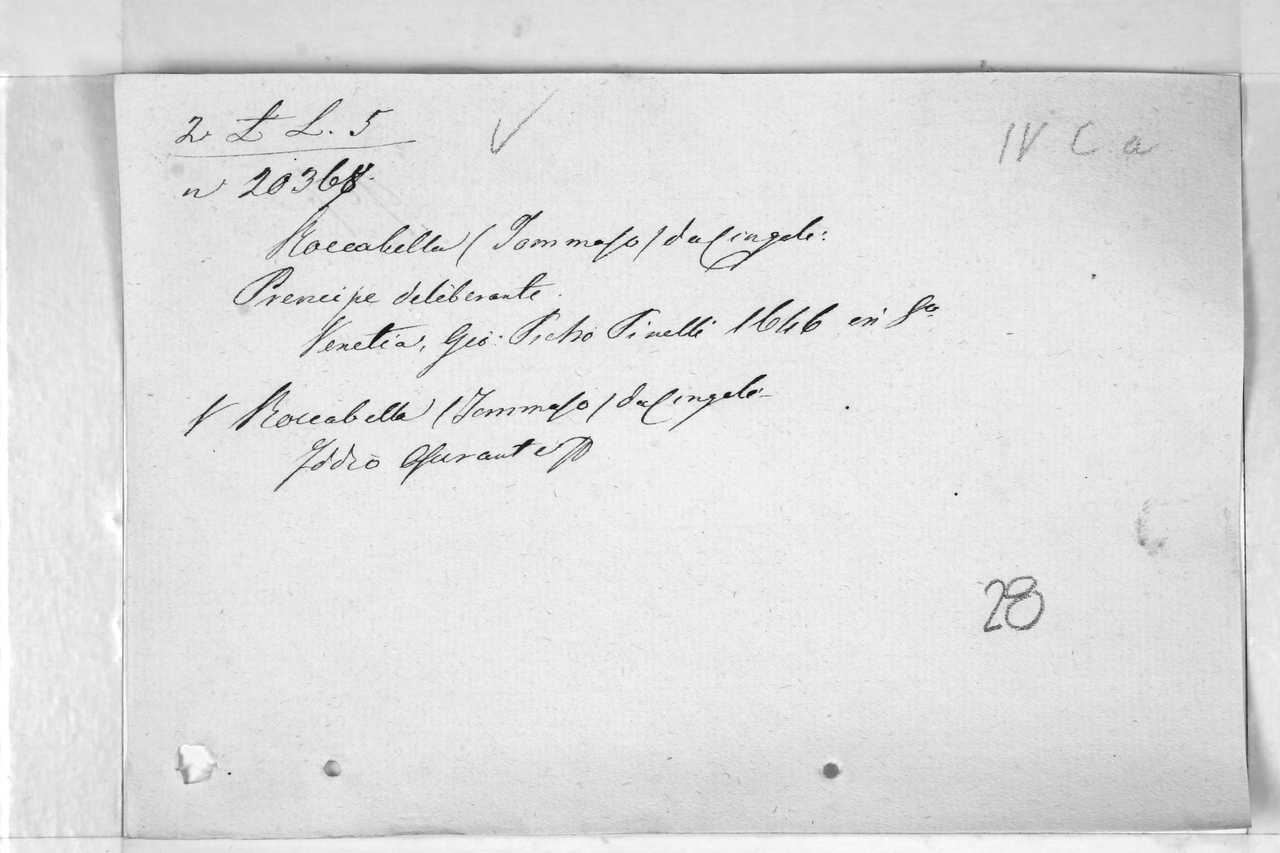 2 Ł L. 5
IV C. a
n 20368.
Roccabella (Tommaso) da Cingole:
Prencipe deliberante.
Venetia, Gio: Pietro Pinelli 1646 in 8º
V Roccabella (Tommaso) da Cingole
Iddio Operante
28